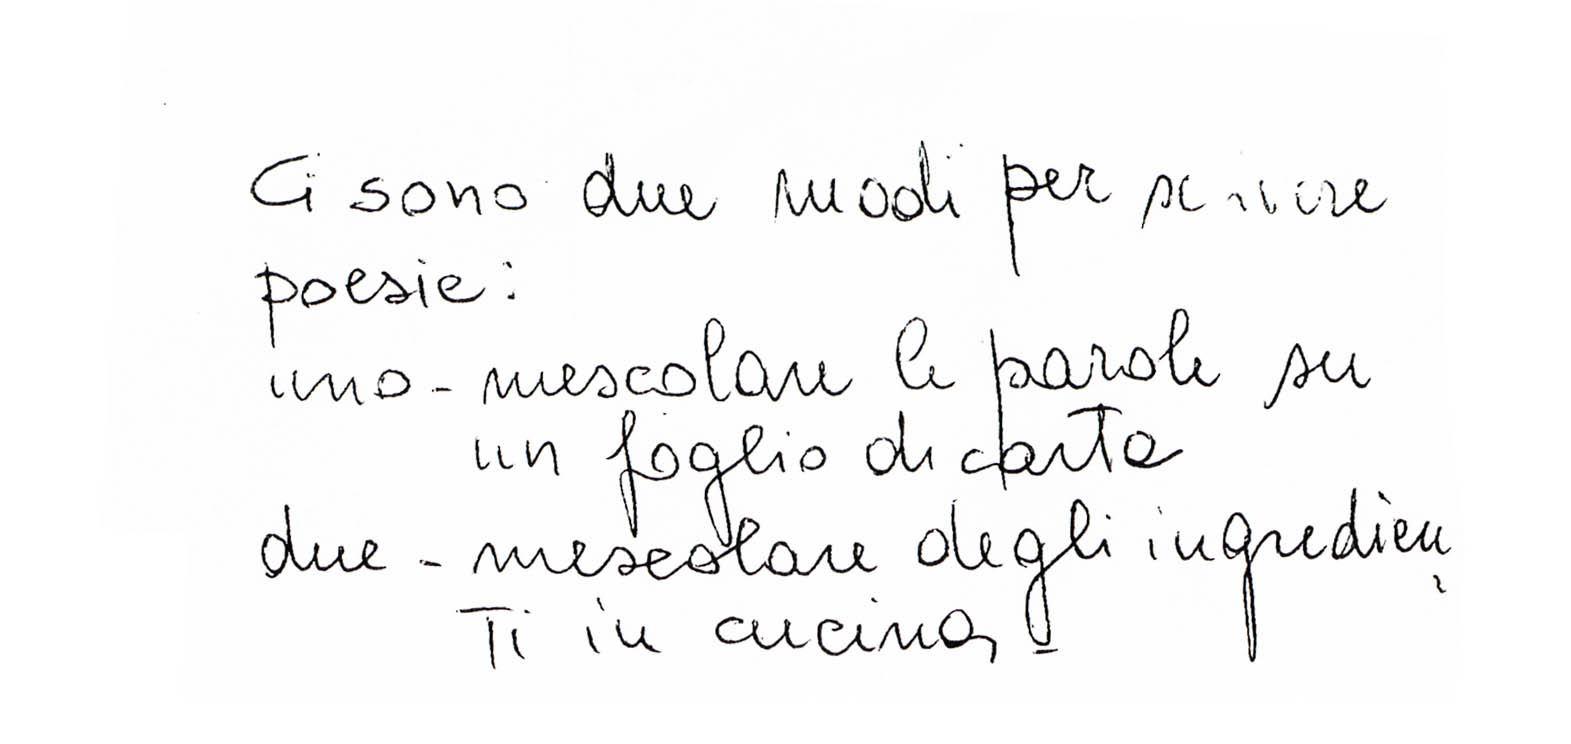 Ci sono due modi per scrivere
poesie:
uno - mescolare le parole su
un foglio di carta
due - mescolare degli ingredien
ti in cucina